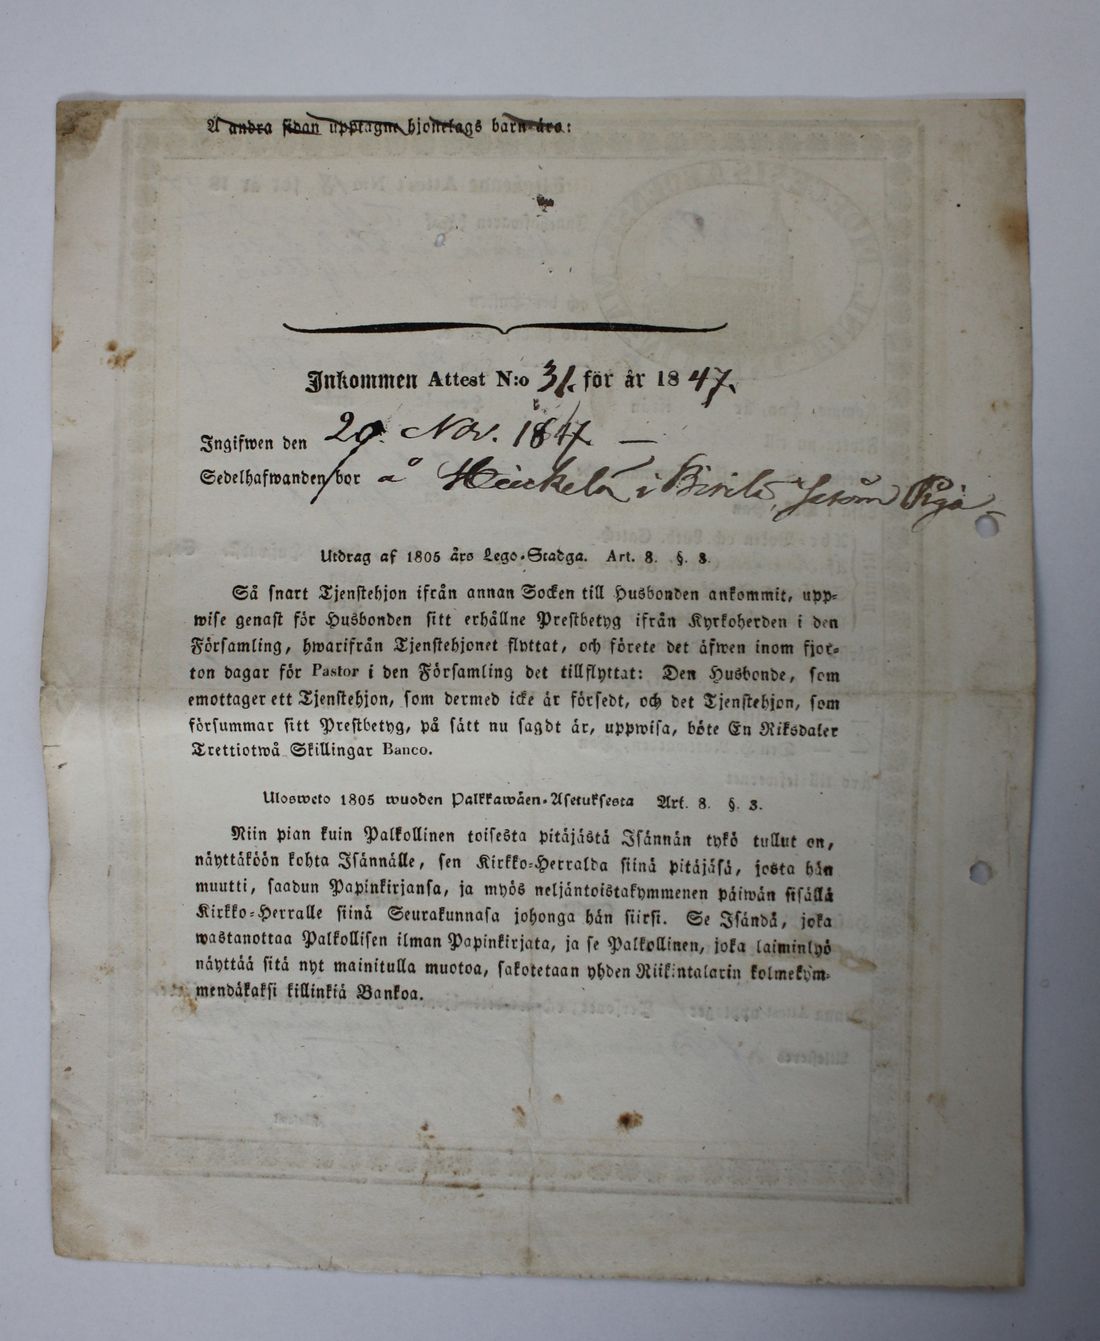 Å andra sidan upptagne hjonelags barn äro:
Inkommen Attest N:o 31. för år 1847.
Ingifwen den 20. Nov. 1847. —
Sedelhafwanden bor å Heickelä i Birila, såsom Piga
Utdrag af 1805 års Lego-Stadga. Art. 8. §. 3.
Så snart Tjenstehjon ifrån annan Socken till Husbonden ankommit, upp-
wise genast för Husbonden sitt erhållne Prestbetyg ifrån Kyrkoherden i den
Församling, hwarifrån Tjenstehjonet flyttat, och förete det äfwen inom fjor-
ton dagar för Pastor i den Församling det tillflyttat: Den Husbonde, som
emottager ett Tjenstehjon, som dermed icke är försedt, och det Tjenstehjon, som
försummar sitt Prestbetyg, på sätt nu sagdt är, uppwisa, böte En Riksdaler
Trettiotwå Skillingar Banco.
Ulosweto 1805 wuoden Palkkawäen-Asetuksesta Art. 8. §. 3.
Niin pian kuin Palkollinen toisesta pitäjästä Isännän tykö tullut on,
näyttäköön kohta Isännälle, sen Kirkko-Herralda siinä pitäjäsä, josta hän
muutti, saadun Papinkirjansa, ja myös neljäntoistakymmenen päiwän sisällä
Kirkko-Herralle siinä Seurakunnasa johonga hän siirsi. Se Isändä, joka
wastanottaa Palkollisen ilman Papinkirjata, ja se Palkollinen, joka laiminlyö
näyttää sitä nyt mainitulla muotoa, sakotetaan yhden Riikintalarin kolmekym-
mendäkaksi killinkiä Bankoa.